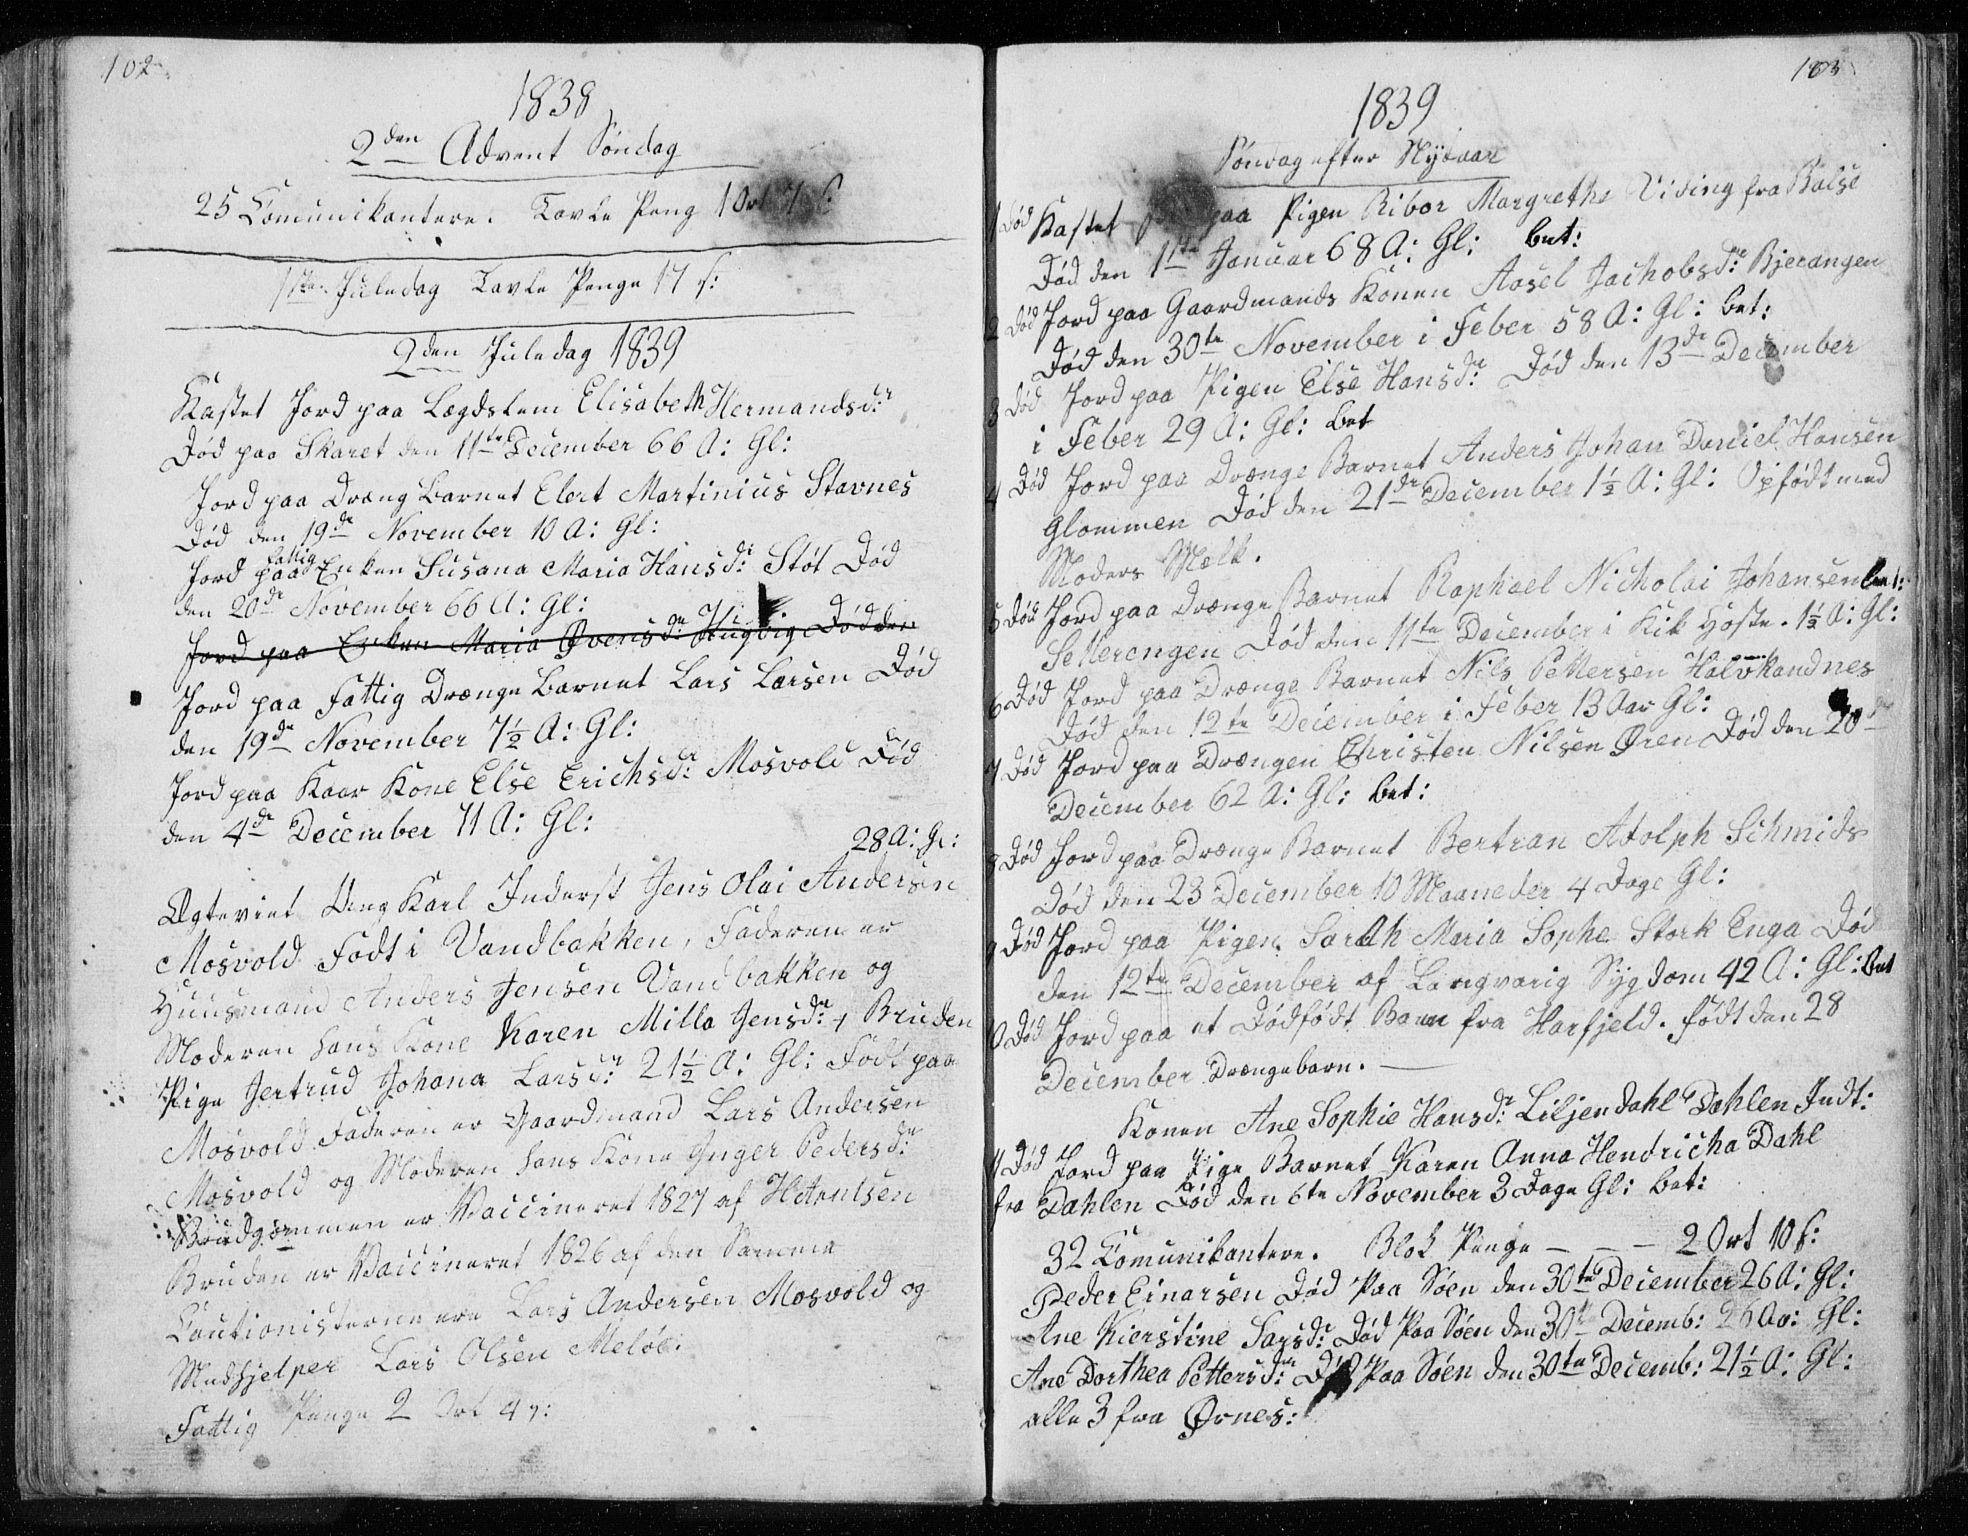 102
1838
2den Advent Søndag
25 Comunikantere. Tavle Peng 1 Ort
1ste Juledag Tavle Penge 17 s:
2den Juledag 1839
Kastet Jord paa Lægdslem Elisabeth Hermandsdr
Død paa Skaret den 11te December 66 A: Gl:
Jord paa Dreng Barnet Elert Martinius Stavnes
Død den 19de November 10 A: Gl:
Jord paa fattig Enken Susana Maria Hansdr: Støt Død
den 20de November 66 A: Gl:
Jord paa Enken Maria Død den
Jord paa Fattig Drænge Barnet Lars Larsen Død
den 19de November 7½ A: Gl:
Jord paa Kaar Kone Else Erichsdr: Mosvold Død
den 4de December 71 A: Gl:
28 A: Gl:
Ægteviet Ung Karl Inderst Jens Olai Andersen
Mosvold Født i Vandbakken, Faderen er
Huusmand Anders Jensen Vandbakken og
Moderen hans Kone Karen Milla Jensdr: + Bruden
Pige Jertrud Johana Larsdr: 21½ A: Gl: Født paa
Mosvold Faderen er Gaardmand Lars Andersen
Mosvold og Moderen hans Kone Inger Pedersdr:
Brudgommen er Vaccineret 1827 af
Bruden er Vaccineret 1826 af den Samme
Cautionisterne ere Lars Andersen Mosvold og
Medhjelper Lars Olsen Meløe:
Fattig Penge 2 Ort 4 s:
103
1839
Søndag efter Nyeaar
1 Død Kastet paa Pigen Ribor Margrethe Viding fra Balse
Død den 1ste Januar 68 A: Gl: bet:
2 Død Jord paa Gaardmands Konen Aasel Jachobsdr: Bjerangen
Død den 30te November i Feber 58 A: Gl: bet:
3 Død Jord paa Pigen Else Hansdr: Død den 13de December
i Feber 29 A: Gl: bet
4 Død Jord paa Drænge Barnet Anders Johan Daniel Hansen
Glommen Død den 21de December 1½ A: Gl: Opfødt med
Moders Melk.
5 Død Jord paa Drænge Barnet Raphael Nicholai Johansen bet:
Setterengen Død den 11te December i Kik Hoste. 1½ A: Gl:
6 Død Jord paa Drænge Barnet Nils Pettersen Halvkandnes
Død den 12te December i Feber 13 Aar Gl:
7 Død Jord paa Drængen Christen Nilsen Øren Død den 20de
December 62 A: Gl: bet:
8 Død Jord paa Drænge Barnet Bertran Atolph Schmids
Død den 23 December 10 Maaneder 4 Dage Gl:
9 Død Jord paa Pigen Sarah Maria Sophe Stork Enga Død
den 12te December af Langvarig Sygdom 42 A: Gl: bet
10 Død Jord paa et Dødfødt Barn fra Harfjeld. født den 28
December Drængebarn.
Konen Ane Sophie Hansdr: Liljendahl Dahlen Indt:
11 Død Jord paa Pige Barnet Karen Anna Hendricha Dahl
fra Dahlen Død den 6te November 3 Dage Gl: bet:
32 Comunikantere. Blok Penge — — — 2 Ort 10 s:
Peder Einarsen Død Paa Søen den 30te December 26 A: Gl:
Ane Kierstine Larsdr: Død Paa Søen den 30te Decemb: 26 Aa: Gl:
Ane Dorthea Pettersdr: Død Paa Søen den 30te Decemb: 21½ A: Gl:
alle 3 fra Ørnes: